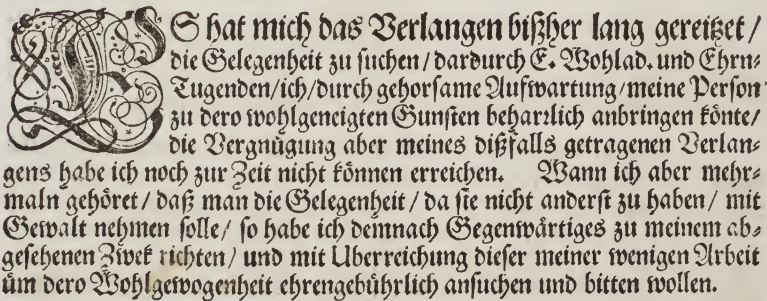 ES hat mich das Verlangen bißher lang gereitzet /
die Gelegenheit zu suchen / dardurch E. Wohlad. und Ehrn-
Tugenden / ich / durch gehorsame Aufwartung / meine Person
zu dero wohlgeneigten Gunsten beharzlich anbringen könte /
die Vergnügung aber meines dißfalls getragenen Verlan-
gens habe ich noch zur Zeit nicht können erreichen. Wann ich aber mehr-
maln gehöret / daß man die Gelegenheit / da sie nicht anderst zu haben / mit
Gewalt nehmen solle / so habe ich demnach Gegenwärtiges zu meinem ab-
gesehenen Zwek richten / und mit Uberreichung dieser meiner wenigen Arbeit
üm dero Wohlgewogenheit ehrengebührlich ansuchen und bitten wollen.